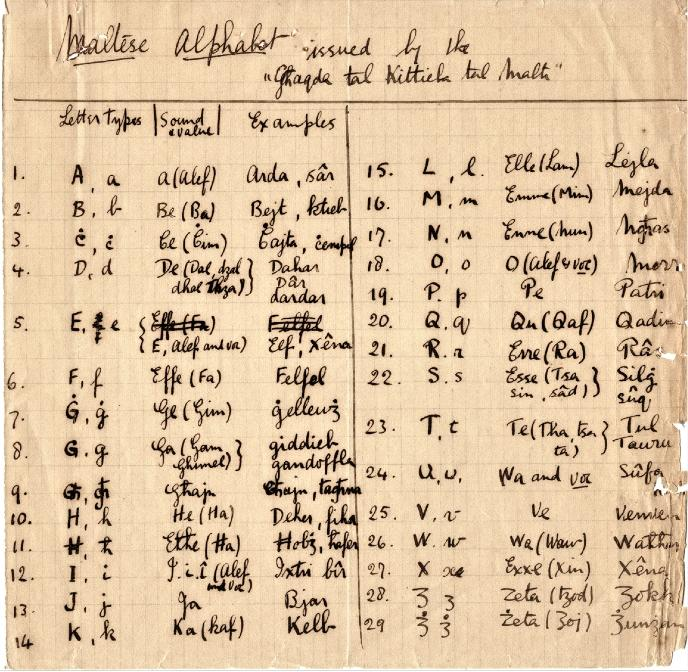 Maltese Alphabet issued by the
"Għaqda tal Kittieba tal Malti"
Letter types | Sound value | Examples
1. A, a a (Alef) Arda, sâr
2. B, b Be (Ba) Bejt, ktieb
3. Ċ, ċ Ċe (Ċim) Ċajta, ċempel
4. D, d De (Dal, dzal dhal thza) } Dahar
Dâr
dardar
5. E, e { Effe (Fa) Felfel
{ E, Alef and voc) Elf, xêna
6. F, f Effe (Fa) Felfel
7. Ġ, ġ Ġe (Ġim) ġellewż
8. G, g Ga (Gam, Ghimel) } giddieb
gandoffla
9. Għ, għ Għajn Għajn, tagħna
10. H, h He (Ha) Deher, fiha
11. Ħ, ħ Eħħe (Ħa) Ħobż, ħafer
12. I, i I. i. î (Alef and voc) Ixtri bîr
13. J, j Ja Bjar
14 K, k Ka (Kaf) Kelb
15. L, l. Elle (Lam) Lejla
16. M, m Emme (Mim) Mejda
17. N, n Enne (Nun)
18. O, o O (Alef & voc) Morr
19. P. p Pe Patri
20. Q, q Qu (Qaf) Qadim
21. R. r Erre (Ra) Râs
22. S. s Esse (Tsa sin, sâd) } Silġ
sûq
23. T, t Te (Tha, tsa ta) }
24. U, u, Wa and voc Sûfa
25. V, v Ve
26. W. w Wa (Waw)
27. X x Exxe (Xin) Xêna
28. Z z Zeta (tzod) Zokk
29 Ż ż Żeta (Żoj) Żunżan